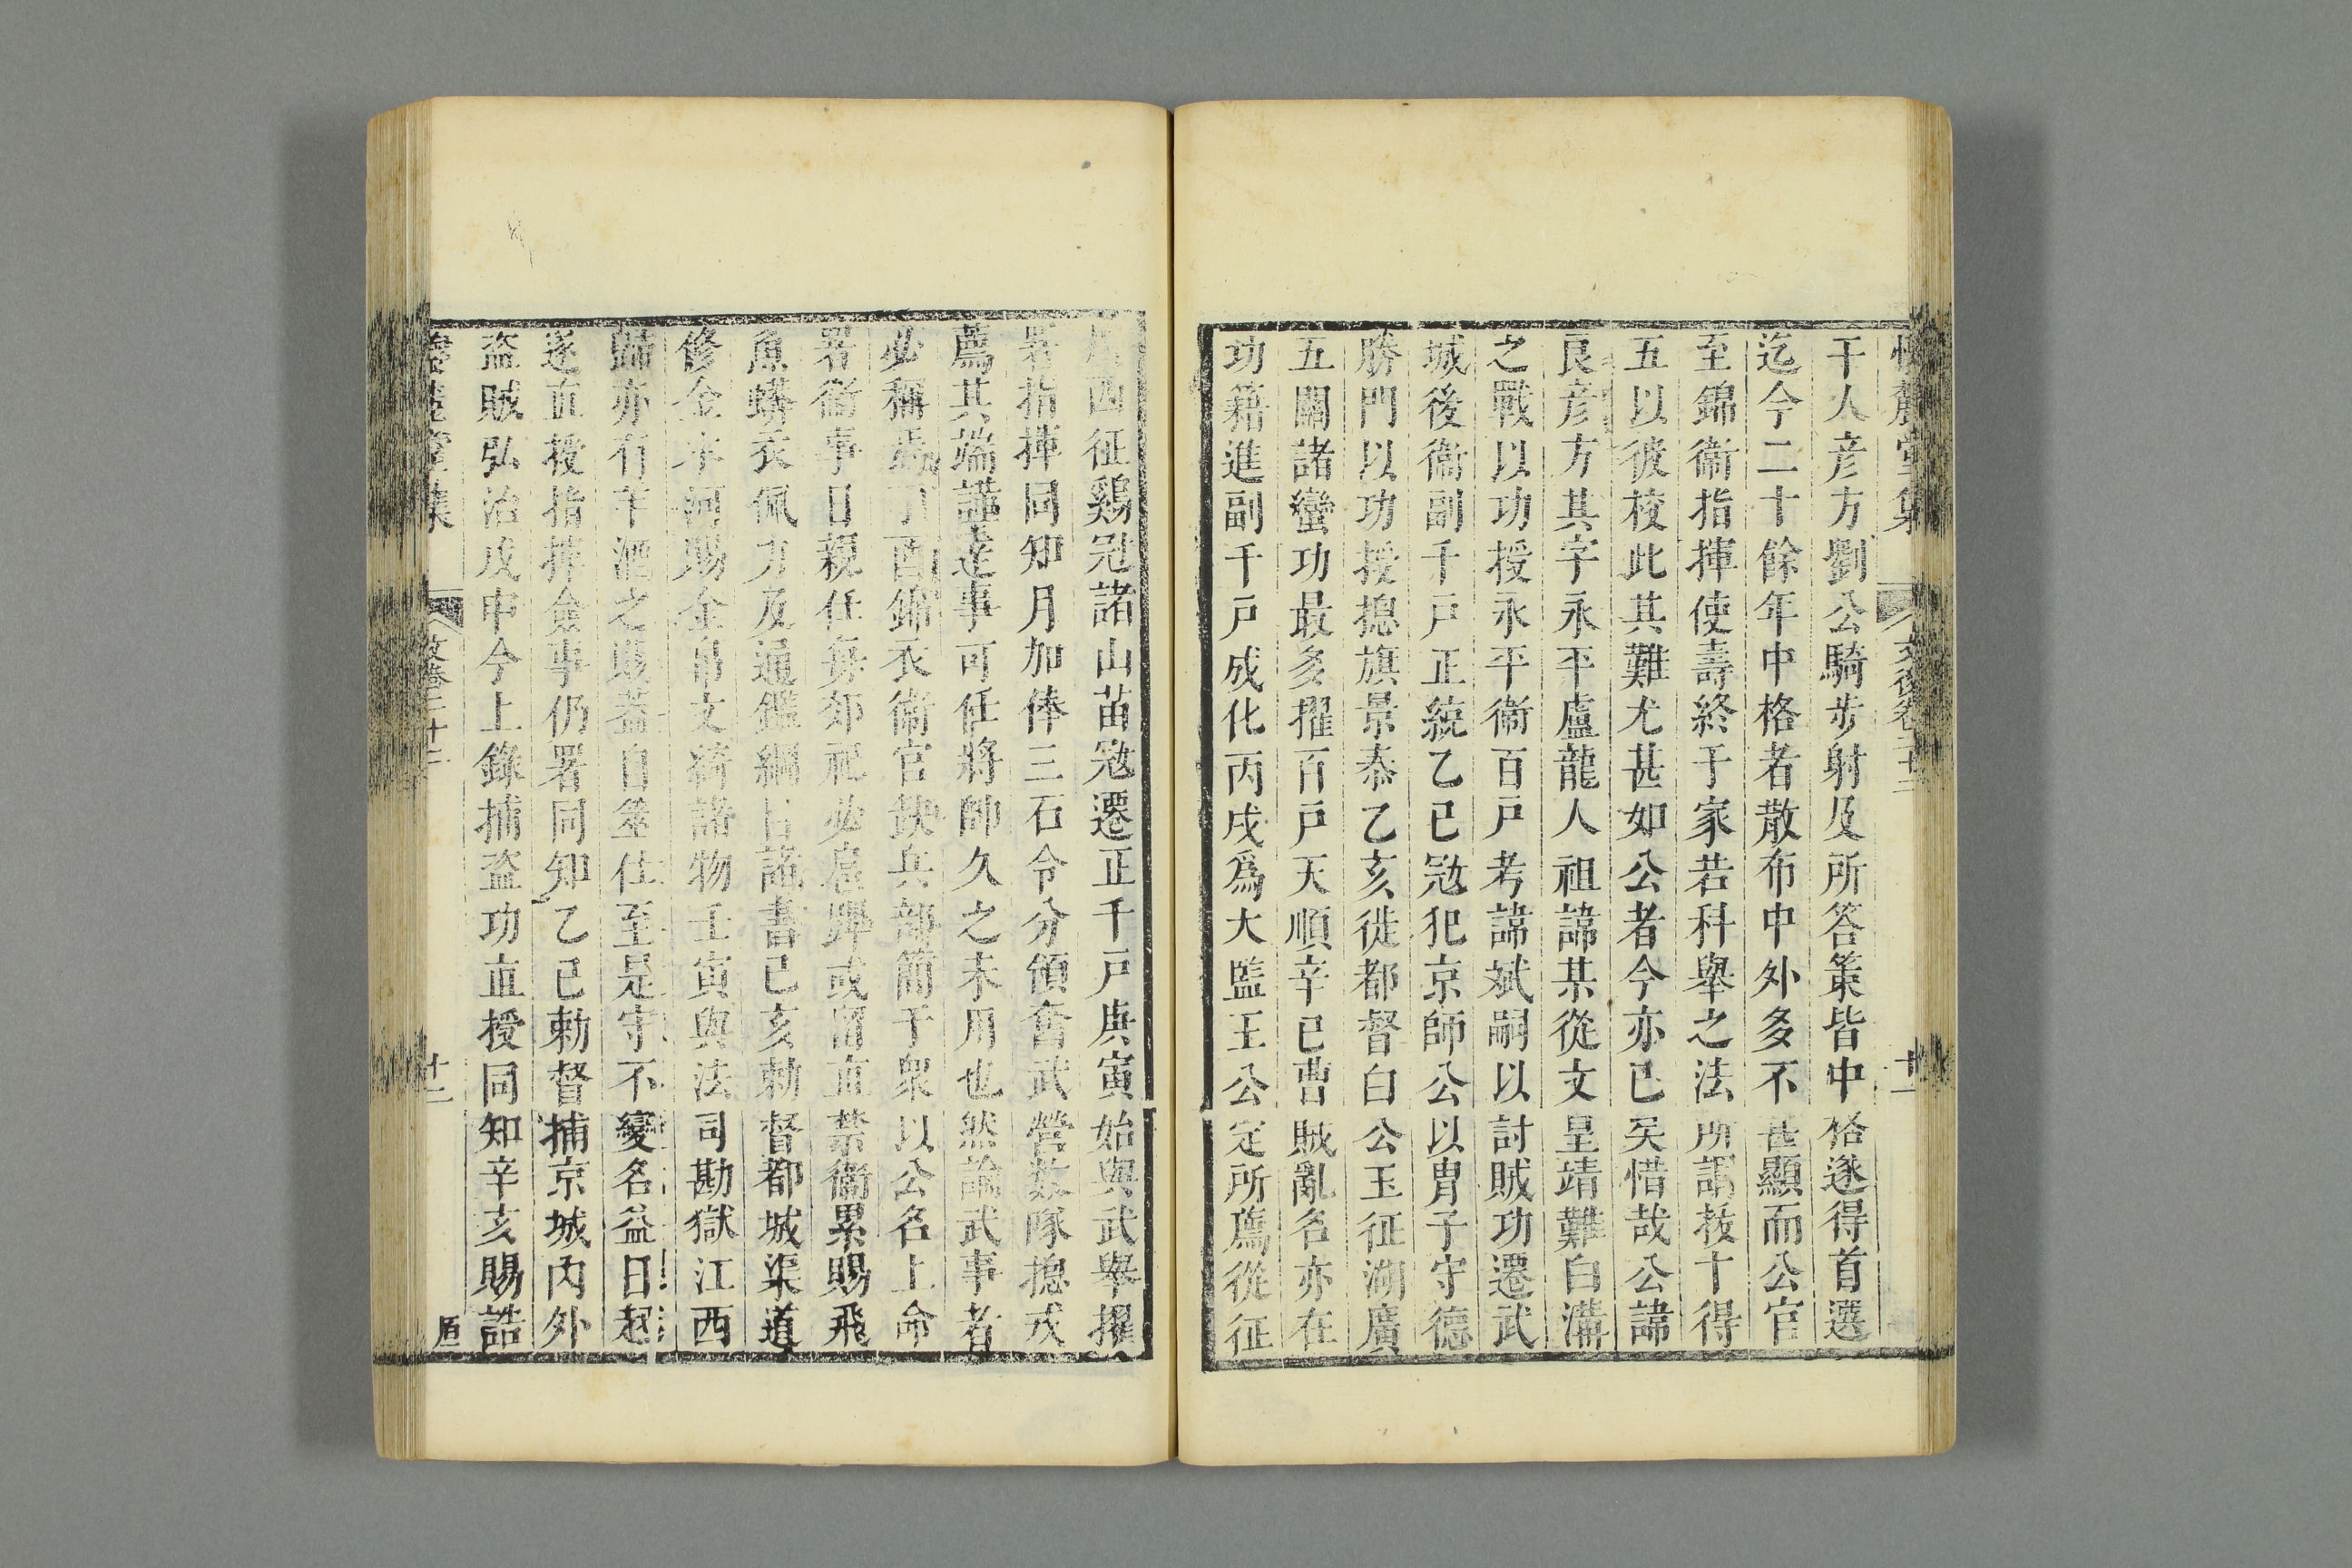 懷麓堂集 文後卷二十三 十一
干人彦方劉公騎步射及所答策皆中格遂得首選
迄今二十餘年中格者散布中外多不甚顯而公官
至錦衞指揮使壽終于家若科舉之法所謂拔十得
五以彼校此其難尤甚如公者今亦已矣惜哉公諱
良彦方其字永平盧龍人祖諱某從文皇靖難白溝
之戰以功授永平衞百戸考諱斌嗣以討賊功遷武
城後衞副千戸正統乙巳冦犯京師公以胄子守德
勝門以功授摠旗景泰乙亥從都督白公玉征湖廣
五開諸蠻功最多擢百戸天順辛巳曹賊亂名亦在
功籍進副千戸成化丙戌爲大監王公定所薦從征
西征鷄冠諸山苗冦遷正千戸庚寅始與武舉擢
署指揮同知月加俸三石令分領奮武營敎隊摠戎
薦其端謹達事可任將帥久之未用也然論武事者
必稱丁酉錦衣衞官缺兵部簡于衆以公名上命
署衞事日親任每郊祀必扈蹕或留直禁衞累賜飛
魚蟒衣佩刀及通鑑綱目諸書己亥勅督都城渠道
修金水河賜金帛文綺諸物壬寅與法司勘獄江西
歸亦有羊酒之賜葢自筮仕至是守不變名益日起
遂直授指揮僉事仍署同知乙巳勅督捕京城内外
盜賊弘治戊申今上錄捕盜功直授同知辛亥賜誥
懷麓堂集 文後卷二十三 十二